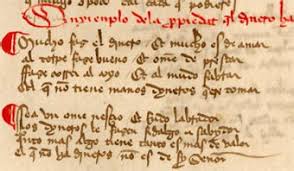 Enxienplo dela ppiedat ql dinero ha
Mucho faz el dinero Et mucho es de amar
Al torpe faze bueno Et ome de prestar
faze correr al coxo Et al mudo fablar
El q no tiene manos dyneros qere tomar
Sea un ome nesçio Et rudo labrador
los dyneros le fazen fidalgo e sabydor
quto mas algo tiene tanto es mas de valor
El q no ha dineros no es de sy Señor